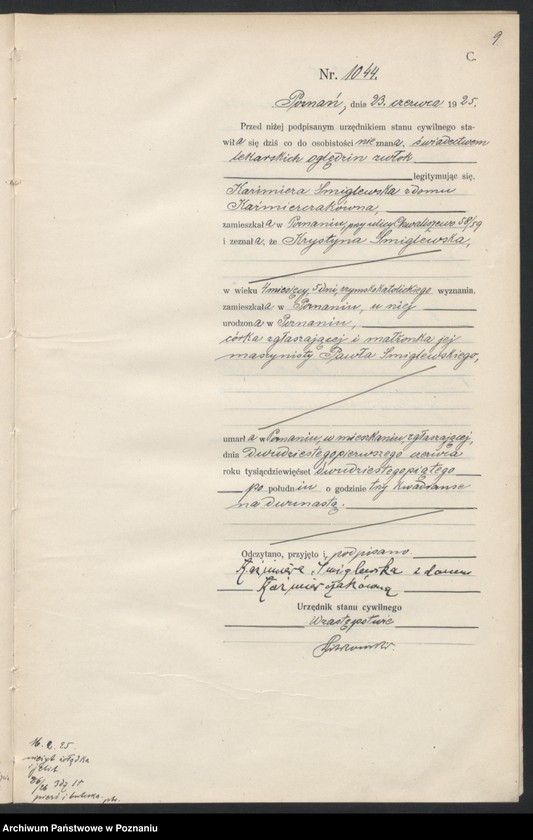 9
C.
Nr. 1044.
Poznań, dnia 23. czerwca 1925.
Przed niżej podpisanym urzędnikiem stanu cywilnego sta-
wiła się dziś co do osobistości nieznana, świadectwem
lekarskich oględzin zwłok
legitymując się,
Kazimiera Smiglewska z domu
Kaźmierczakówna,
zamieszkała w Poznaniu, przy ulicy Chwaliszewo 58/59
i zeznała, że Krystyna Smiglewska,
w wieku 4 miesięcy, 5 dni, rzymskokatolickiego wyznania,
zamieszkała w Poznaniu, u niej
urodzona w Poznaniu,
córka zgłaszającej i małżonka jej
maszynisty Pawła Smiglewskiego,
umarła w Poznaniu, w mieszkaniu zgłaszającej,
dnia dwudziestego pierwszego czerwca
roku tysiącdziewięćset dwudziestegopiątego
po południu o godzinie trzy kwadranse
na dwunastą.
Odczytano, przyjęto i podpisano
Kazimiera Smiglewska z domu
Kaźmierczakówna
Urzędnik stanu cywilnego
W zastępstwie
16. 2. 25.
Archiwum Państwowe w Poznaniu